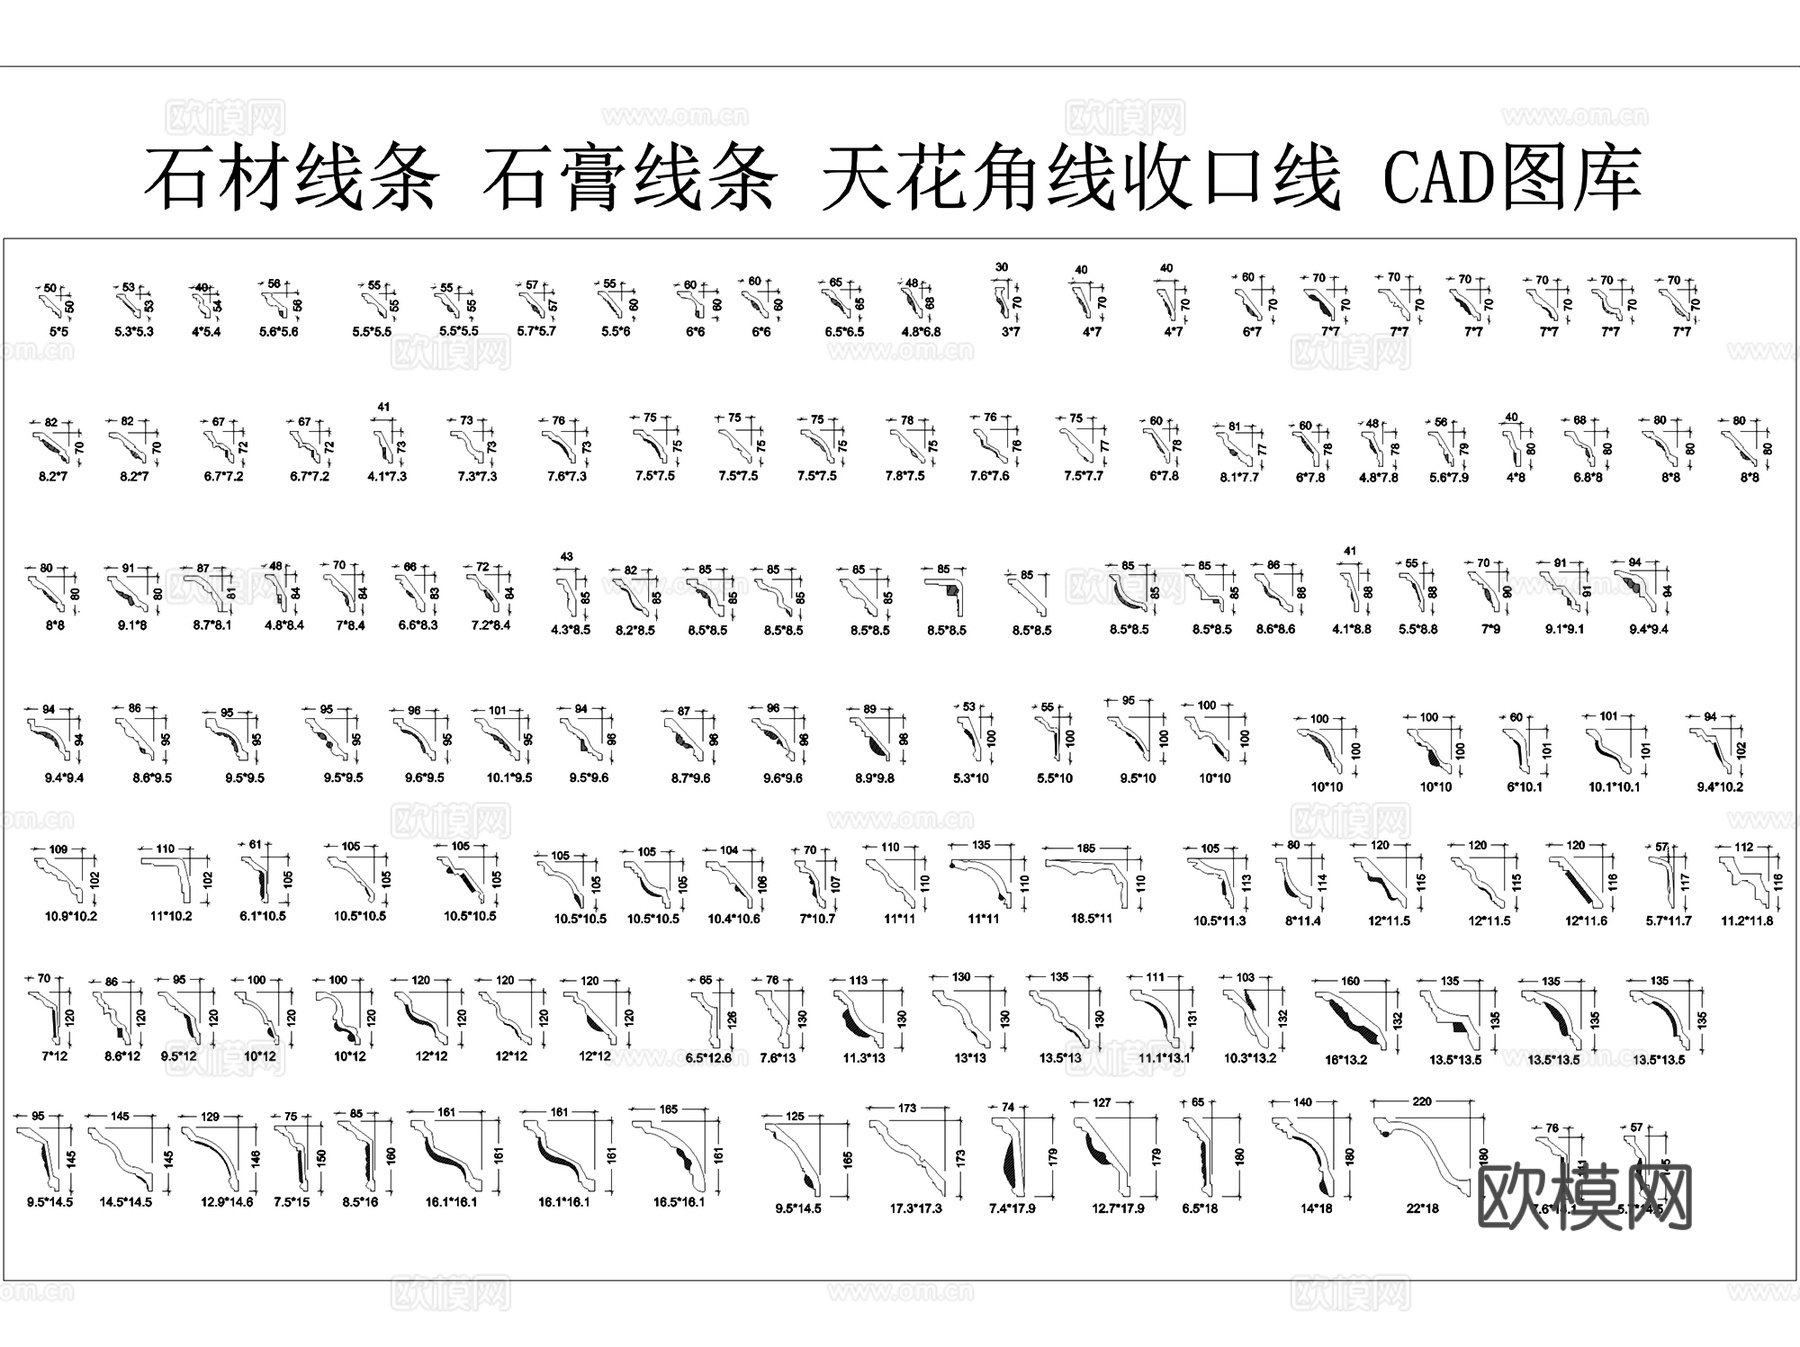 欧模网 www.om.cn 欧模网 www.om.cn
石材线条 石膏线条 天花角线收口线 CAD图库
50 53 40 56 55 55 57 55 60 60 65 48 30 40 40 60 70 70 70 70 70 70
50 53 54 56 55 55 57 60 60 60 65 68 70 70 70 70 70 70 70 70 70 70
5*5 5.3*5.3 4*5.4 5.6*5.6 5.5*5.5 5.5*5.5 5.7*5.7 5.5*6 6*6 6*6 6.5*6.5 4.8*6.8 3*7 4*7 4*7 6*7 7*7 7*7 7*7 7*7 7*7 7*7
om.cn 欧模网 www.om.cn 欧模网 www.
82 82 67 67 41 73 76 75 75 75 78 76 75 60 81 60 48 56 40 68 80 80
70 70 72 72 73 73 73 75 75 75 75 76 77 78 77 78 78 79 80 80 80 80
8.2*7 8.2*7 6.7*7.2 6.7*7.2 4.1*7.3 7.3*7.3 7.6*7.3 7.5*7.5 7.5*7.5 7.5*7.5 7.8*7.5 7.6*7.6 7.5*7.7 6*7.8 8.1*7.7 6*7.8 4.8*7.8 5.6*7.9 4*8 6.8*8 8*8 8*8
80 91 87 48 70 66 72 43 82 85 85 65 85 85 85 85 86 41 55 70 91 94
80 80 81 84 84 83 84 85 85 85 85 85 85 85 85 85 86 88 88 90 91 94
欧模网 www.om.cn 欧模网 www.om.cn
8*8 9.1*8 8.7*8.1 4.8*8.4 7*8.4 6.6*8.3 7.2*8.4 4.3*8.5 8.2*8.5 8.5*8.5 8.5*8.5 8.5*8.5 8.5*8.5 8.5*8.5 8.5*8.5 8.5*8.5 8.6*8.6 4.1*8.8 5.5*8.8 7*9 9.1*9.1 9.4*9.4
94 86 95 95 96 101 94 87 96 89 53 55 95 100 100 100 60 101 94
94 95 95 95 95 95 96 96 96 98 100 100 100 100 100 100 101 101 102
9.4*9.4 8.6*9.5 9.5*9.5 9.5*9.5 9.6*9.5 10.1*9.5 9.5*9.6 8.7*9.6 9.6*9.6 8.9*9.8 5.3*10 5.5*10 9.5*10 10*10 10*10 10*10 6*10.1 10.1*10.1 9.4*10.2
om.cn 欧模网 www.om.cn 欧模网 www.
109 110 61 105 105 105 105 104 70 110 135 185 105 80 120 120 120 57 112
102 102 105 105 105 105 105 106 107 110 110 110 113 114 115 115 116 117 116
10.9*10.2 11*10.2 6.1*10.5 10.5*10.5 10.5*10.5 10.5*10.5 10.5*10.5 10.4*10.6 7*10.7 11*11 11*11 18.5*11 10.5*11.3 8*11.4 12*11.5 12*11.5 12*11.6 5.7*11.7 11.2*11.8
70 86 95 100 100 120 120 120 65 76 113 130 135 111 103 160 135 135 135
120 120 120 120 120 120 120 120 126 130 130 130 130 131 132 132 135 135 135
7*12 8.6*12 9.5*12 10*12 10*12 12*12 12*12 12*12 6.5*12.6 7.6*13 11.3*13 13*13 13.5*13 11.1*13.1 10.3*13.2 16*13.2 13.5*13.5 13.5*13.5 13.5*13.5
欧模网 www.om.cn 欧模网 www.om.cn
95 145 129 75 85 161 161 165 125 173 74 127 65 140 220 76 57
145 145 146 150 160 161 161 161 165 173 179 179 180 180 180
9.5*14.5 14.5*14.5 12.9*14.6 7.5*15 8.5*16 16.1*16.1 16.1*16.1 16.5*16.1 9.5*14.5 17.3*17.3 7.4*17.9 12.7*17.9 6.5*18 14*18 22*18
欧模网
om.cn 欧模网 www.om.cn 欧模网 www.